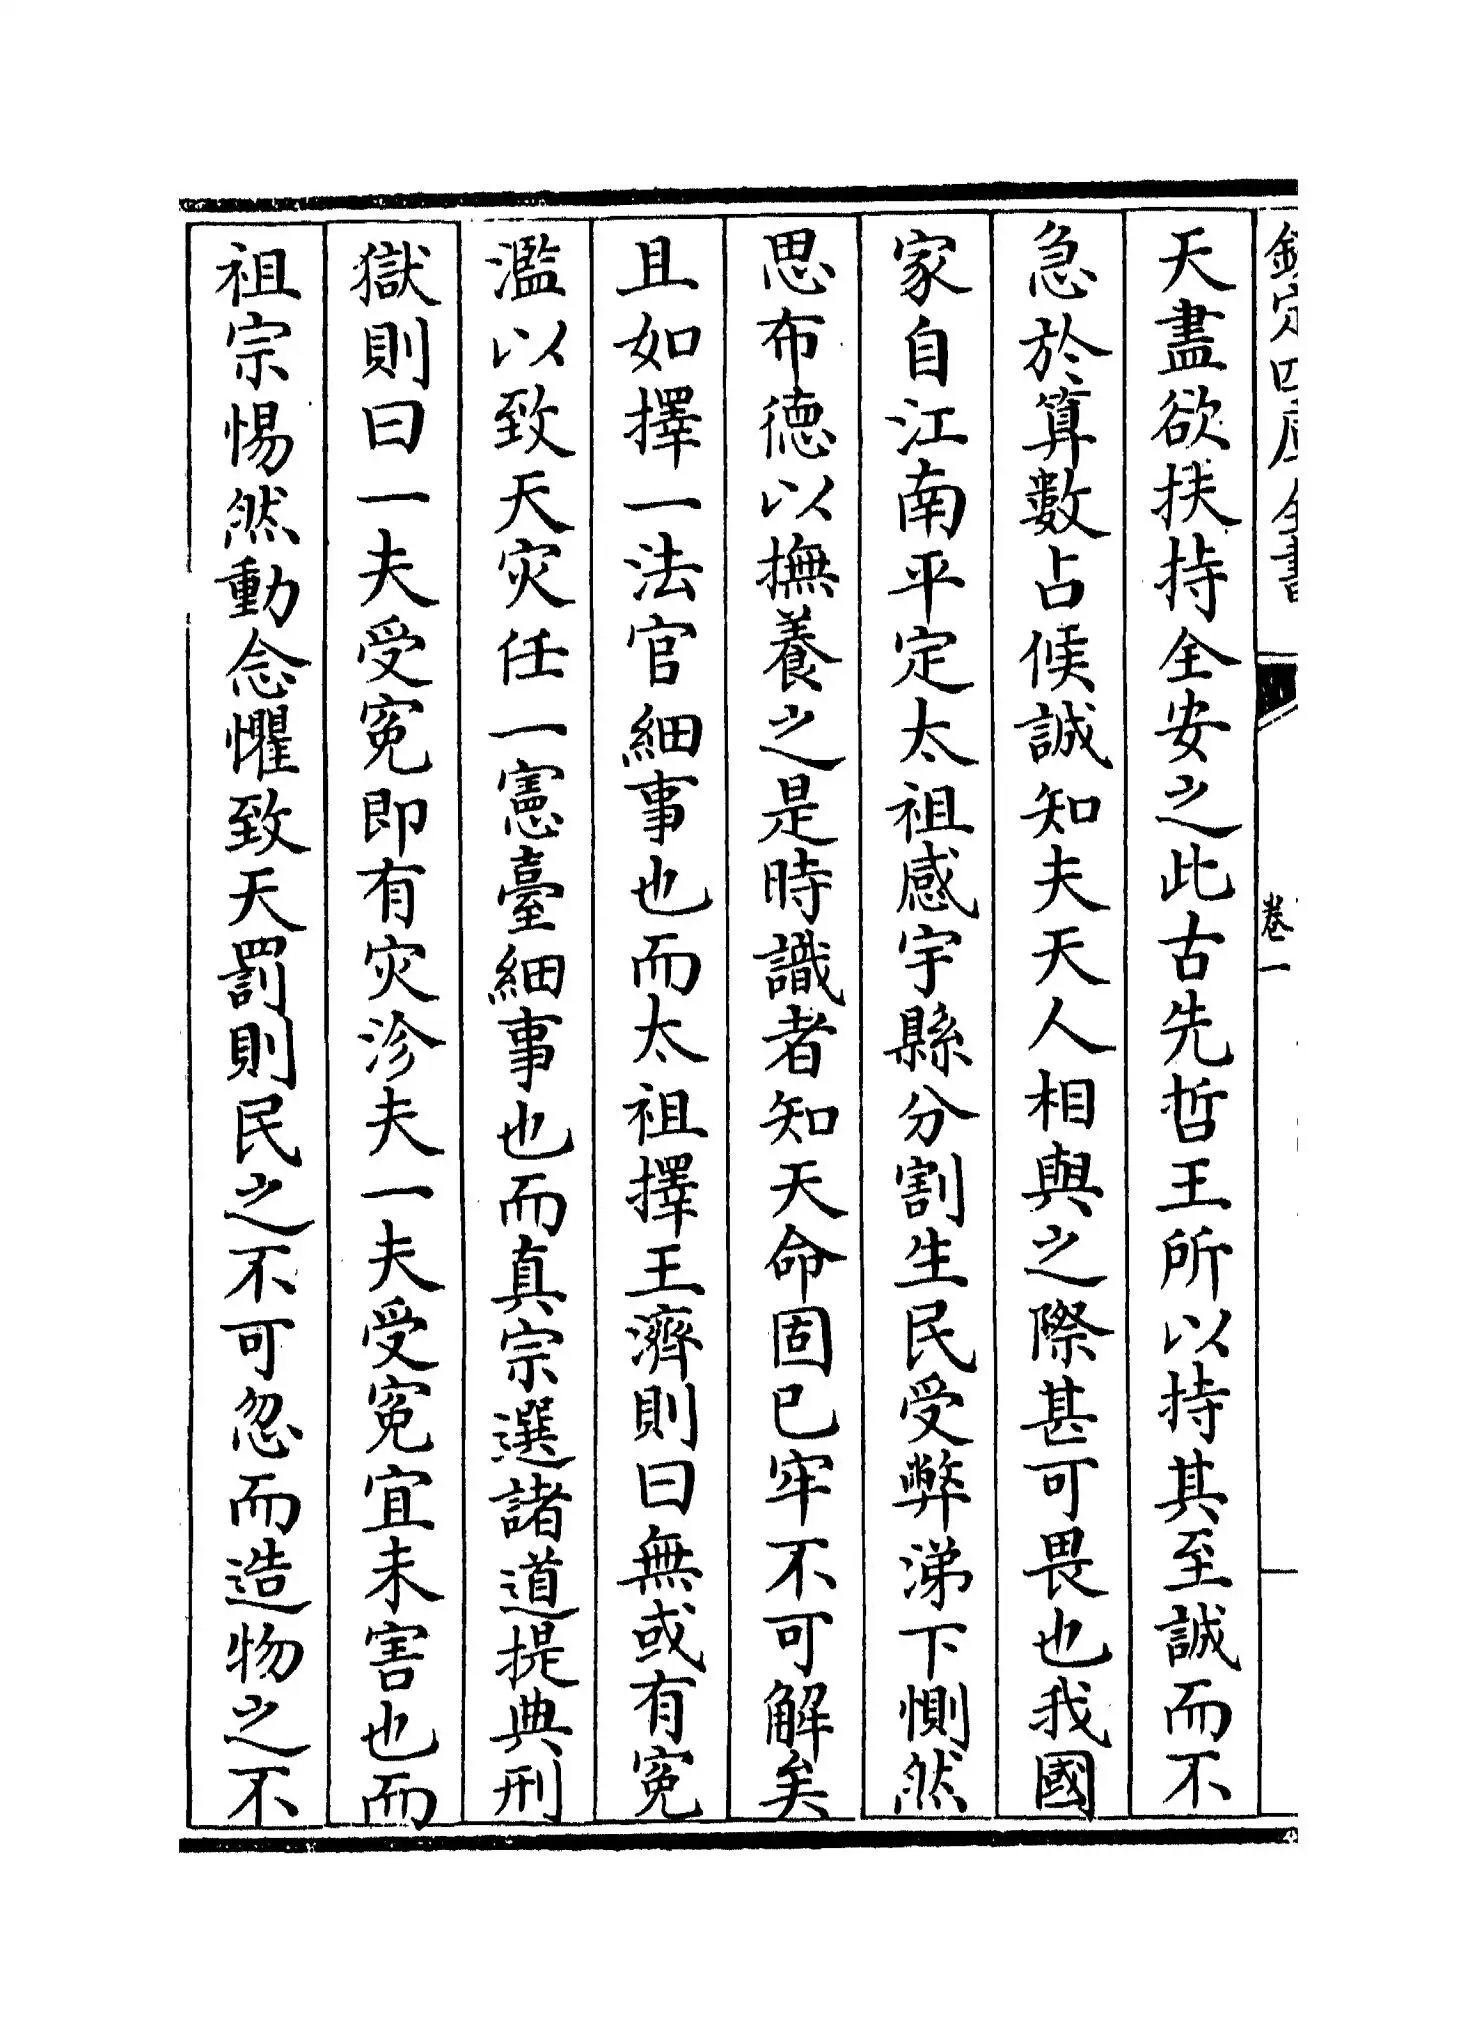 欽定四庫全書
卷一
天盡欲扶持全安之此古先哲王所以持其至誠而不
急於算數占候誠知夫天人相與之際甚可畏也我國
家自江南平定太祖感宇縣分割生民受弊涕下惻然
思布德以撫養之是時識者知天命固已牢不可解矣
且如擇一法官細事也而太祖擇王濟則曰無或有寃
濫以致天灾任一憲臺細事也而真宗選諸道提典刑
獄則曰一夫受寃即有灾沴夫一夫受寃宜未害也而
祖宗惕然動念懼致天罰則民之不可忽而造物之不